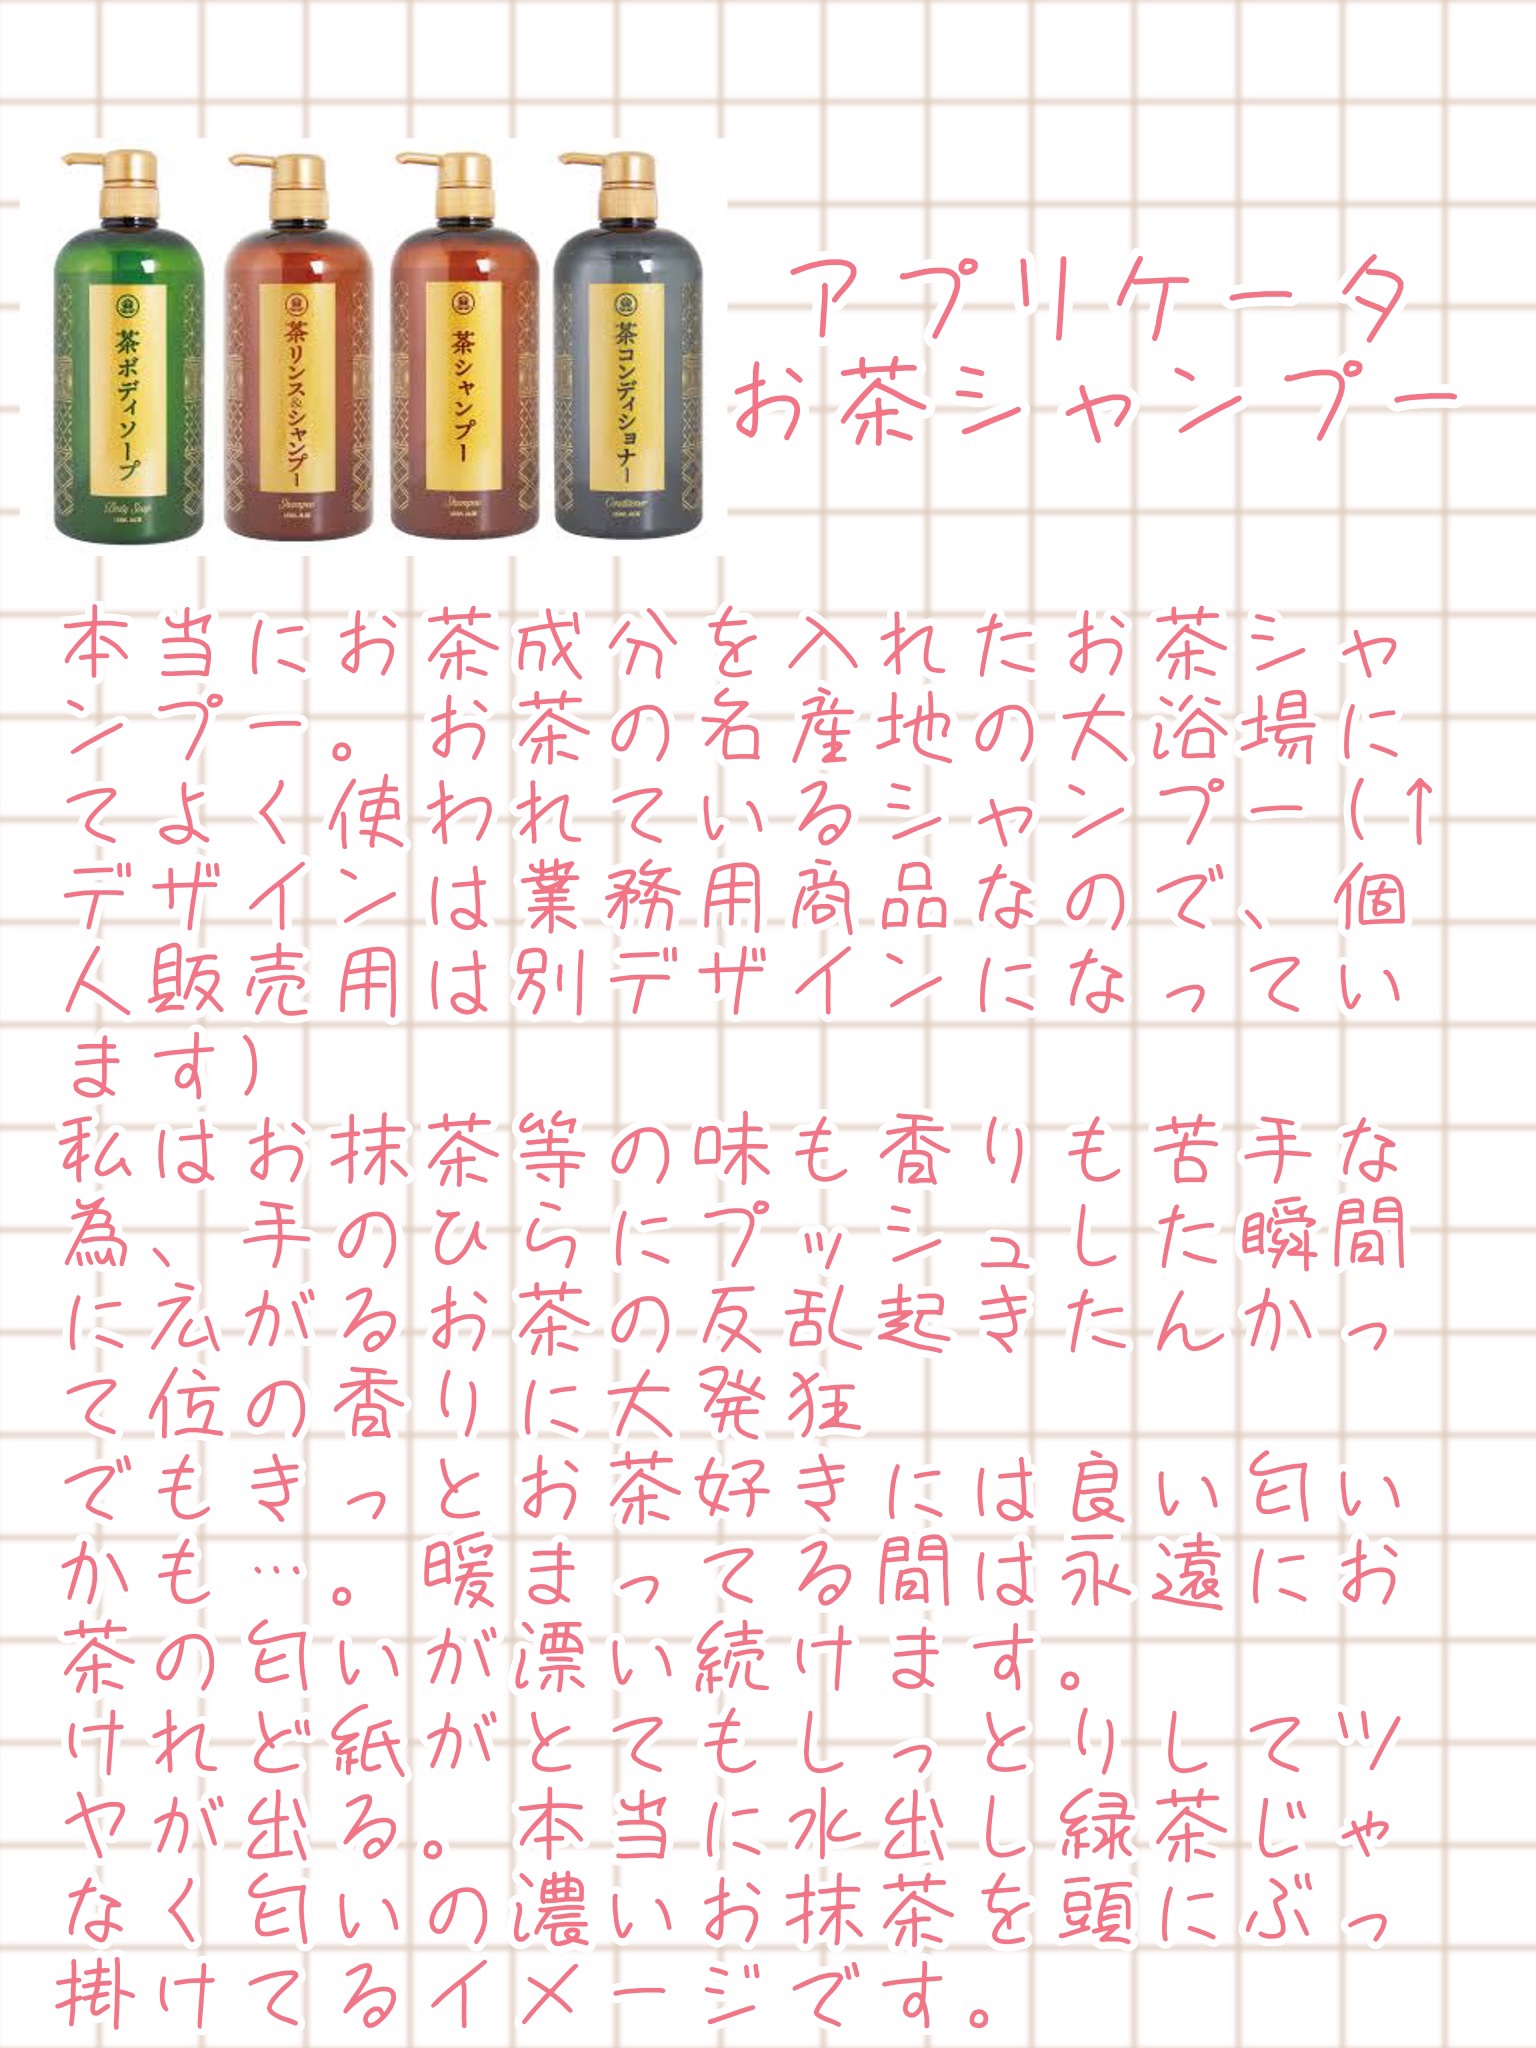 茶ボディソープ
Body Soap
茶リンス&シャンプー
Shampoo
茶シャンプー
Shampoo
茶コンディショナー
Conditioner
アプリケータ
お茶シャンプー
本当にお茶成分を入れたお茶シャ
ンプー。お茶の名産地の大浴場に
てよく使われているシャンプー(↑
デザインは業務用商品なので、個
人販売用は別デザインになってい
ます)
私はお抹茶等の味も香りも苦手な
為、手のひらにプッシュした瞬間
に広がるお茶の反乱起きたんかっ
て位の香りに大発狂
でもきっとお茶好きには良い匂い
かも…。暖まってる間は永遠にお
茶の匂いが漂い続けます。
けれど紙がとてもしっとりしてツ
ヤが出る。本当に水出し緑茶じゃ
なく匂いの濃いお抹茶を頭にぶっ
掛けてるイメージです。